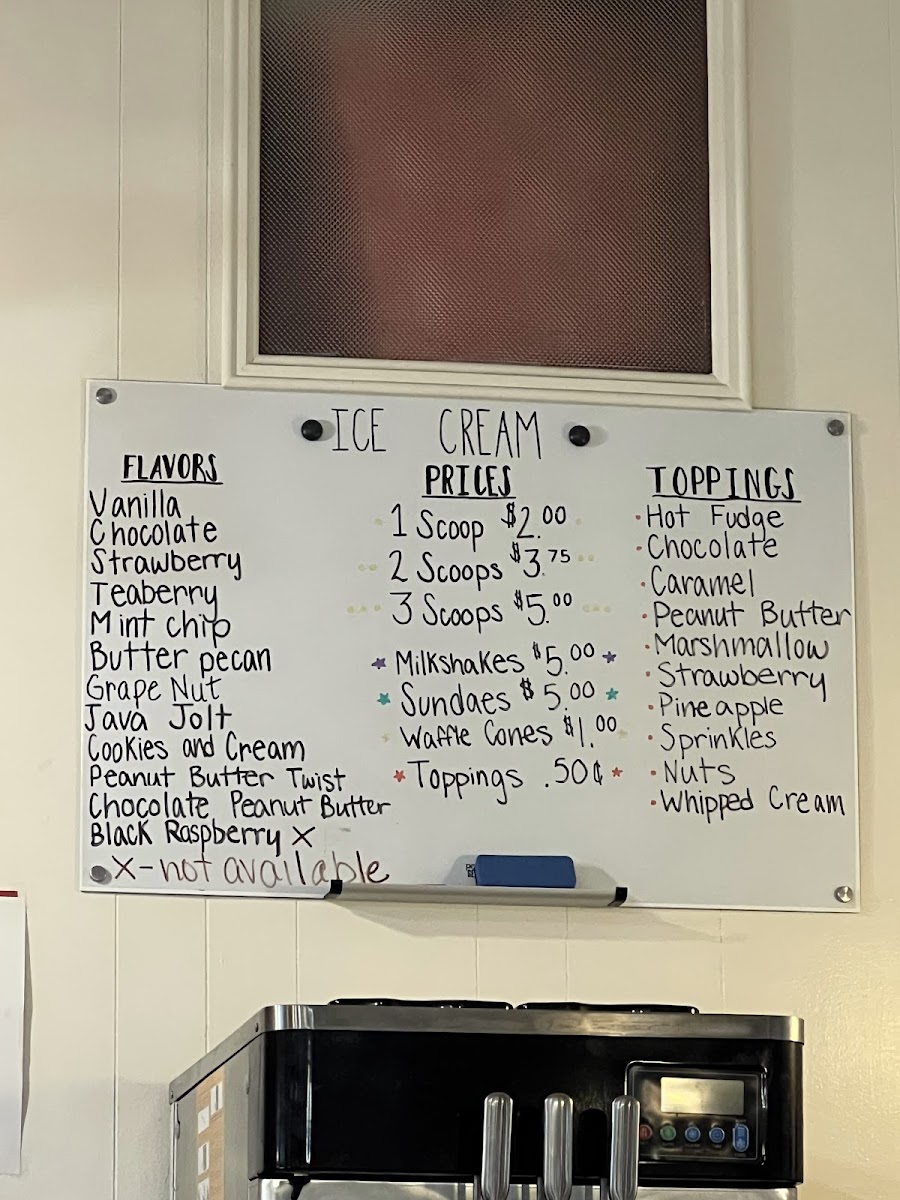 ICE CREAM
FLAVORS
Vanilla
Chocolate
Strawberry
Teaberry
Mint chip
Butter pecan
Grape Nut
Java Jolt
Cookies and Cream
Peanut Butter Twist
Chocolate Peanut Butter
Black Raspberry X
X-not available
PRICES
1 Scoop $2.00
2 Scoops $3.75
3 Scoops $5.00
Milkshakes $5.00
Sundaes $5.00
Waffle Cones $1.00
Toppings .50¢
TOPPINGS
Hot Fudge
Chocolate
Caramel
Peanut Butter
Marshmallow
Strawberry
Pineapple
Sprinkles
Nuts
Whipped Cream